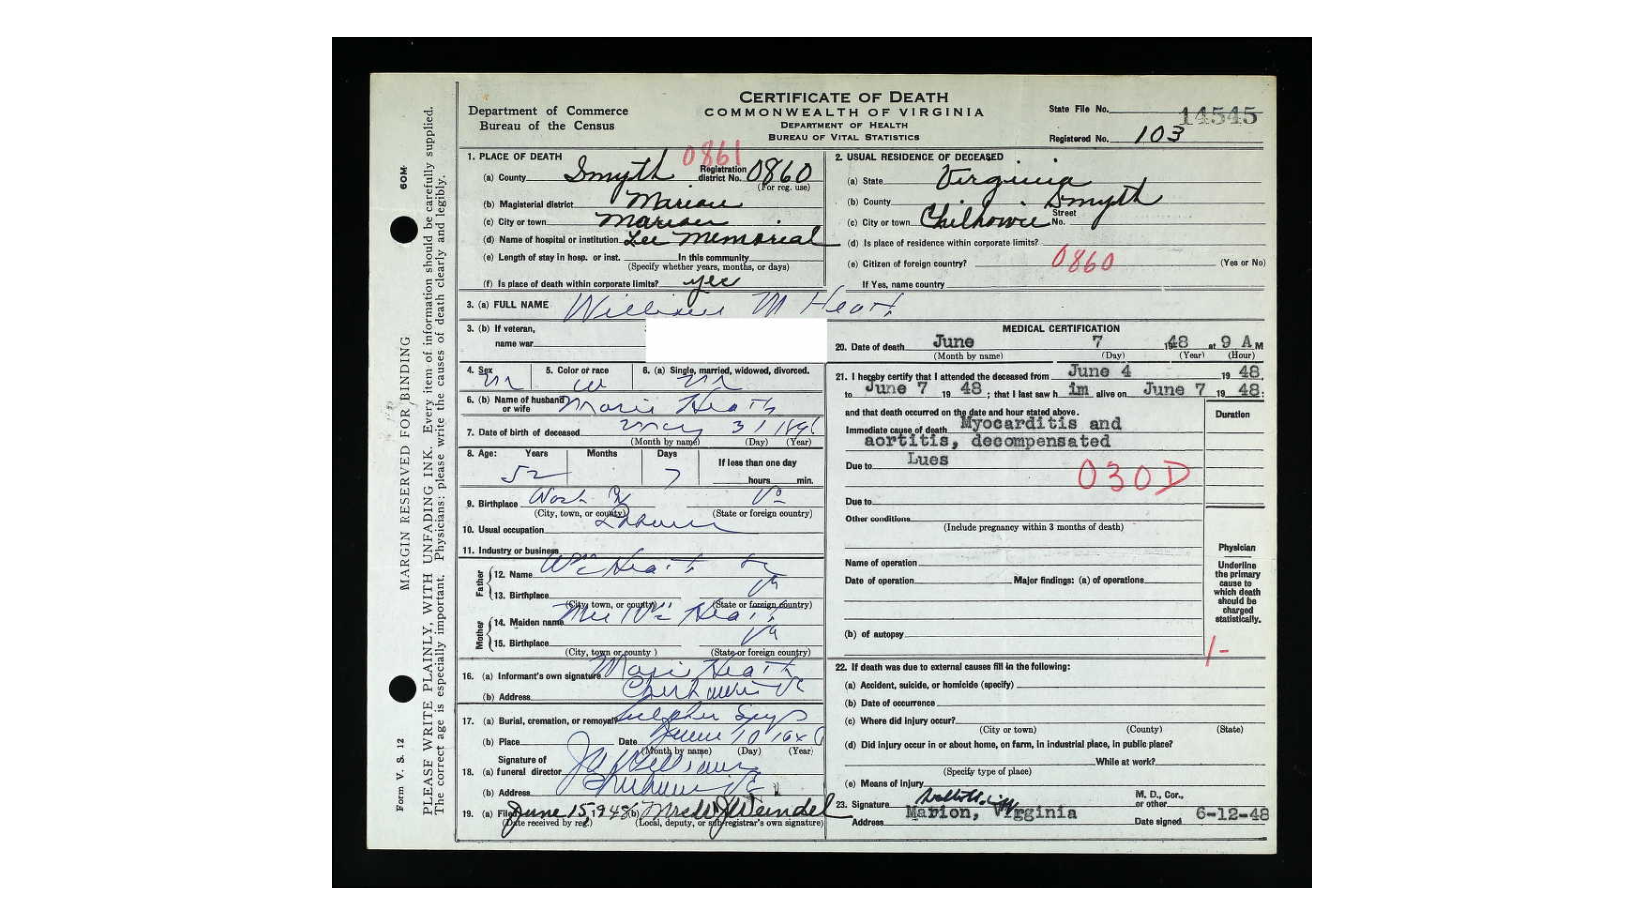 CERTIFICATE OF DEATH
COMMONWEALTH OF VIRGINIA
DEPARTMENT OF HEALTH
BUREAU OF VITAL STATISTICS
Department of Commerce
Bureau of the Census
State File No. 14545
Registered No. 103
1. PLACE OF DEATH
0861
(a) County Smyth Registration district No. 0860
(For reg. use)
(b) Magisterial district Marion
(c) City or town Marion
(d) Name of hospital or institution Lee Memorial
(e) Length of stay in hosp. or inst. In this community
(Specify whether years, months, or days)
(f) Is place of death within corporate limits? yes
2. USUAL RESIDENCE OF DECEASED
(a) State Virginia
(b) County Smyth
(c) City or town Chilhowie Street No.
(d) Is place of residence within corporate limits?
(e) Citizen of foreign country? 0860 (Yes or No)
If Yes, name country
3. (a) FULL NAME William M Heath
3. (b) If veteran,
name war
4. Sex M 5. Color or race W 6. (a) Single, married, widowed, divorced. M
6. (b) Name of husband or wife Marie Heath
7. Date of birth of deceased May 31 1896
(Month by name) (Day) (Year)
8. Age: Years Months Days If less than one day
52 7 hours min.
9. Birthplace Wash Va
(City, town, or county) (State or foreign country)
10. Usual occupation
11. Industry or business
Father
12. Name Wm Heath
13. Birthplace Va
(City, town, or county) (State or foreign country)
Mother
14. Maiden name Heath
15. Birthplace Va
(City, town or county ) (State or foreign country)
16. (a) Informant's own signature Marie Heath
(b) Address Chilhowie Va
17. (a) Burial, cremation, or removal Sulpher Spgs
(b) Place Date June 10 1948
(Month by name) (Day) (Year)
18. Signature of
(a) funeral director Williams
(b) Address Chilhowie Va
19. (a) Filed June 15, 1948 (b) Mrs W J Weindel
(Date received by reg.) (Local, deputy, or sub-registrar's own signature)
MEDICAL CERTIFICATION
20. Date of death June 7 1948 at 9 A M
(Month by name) (Day) (Year) (Hour)
21. I hereby certify that I attended the deceased from June 4 19 48,
to June 7 19 48 ; that I last saw h im alive on June 7 19 48;
and that death occurred on the date and hour stated above.
Duration
Immediate cause of death Myocarditis and
aortitis, decompensated
Due to Lues
030D
Due to
Other conditions
(Include pregnancy within 3 months of death)
Name of operation
Date of operation Major findings: (a) of operations
(b) of autopsy
Physician
Underline
the primary
cause to
which death
should be
charged
statistically.
1-
22. If death was due to external causes fill in the following:
(a) Accident, suicide, or homicide (specify)
(b) Date of occurrence
(c) Where did injury occur?
(City or town) (County) (State)
(d) Did injury occur in or about home, on farm, in industrial place, in public place?
While at work?
(Specify type of place)
(e) Means of injury
23. Signature M. D., Cor., or other
Address Marion, Virginia Date signed 6-12-48
Form V. S. 12
MARGIN RESERVED FOR BINDING
60M
PLEASE WRITE PLAINLY, WITH UNFADING INK. Every item of information should be carefully supplied.
The correct age is especially important. Physicians: please write the causes of death clearly and legibly.